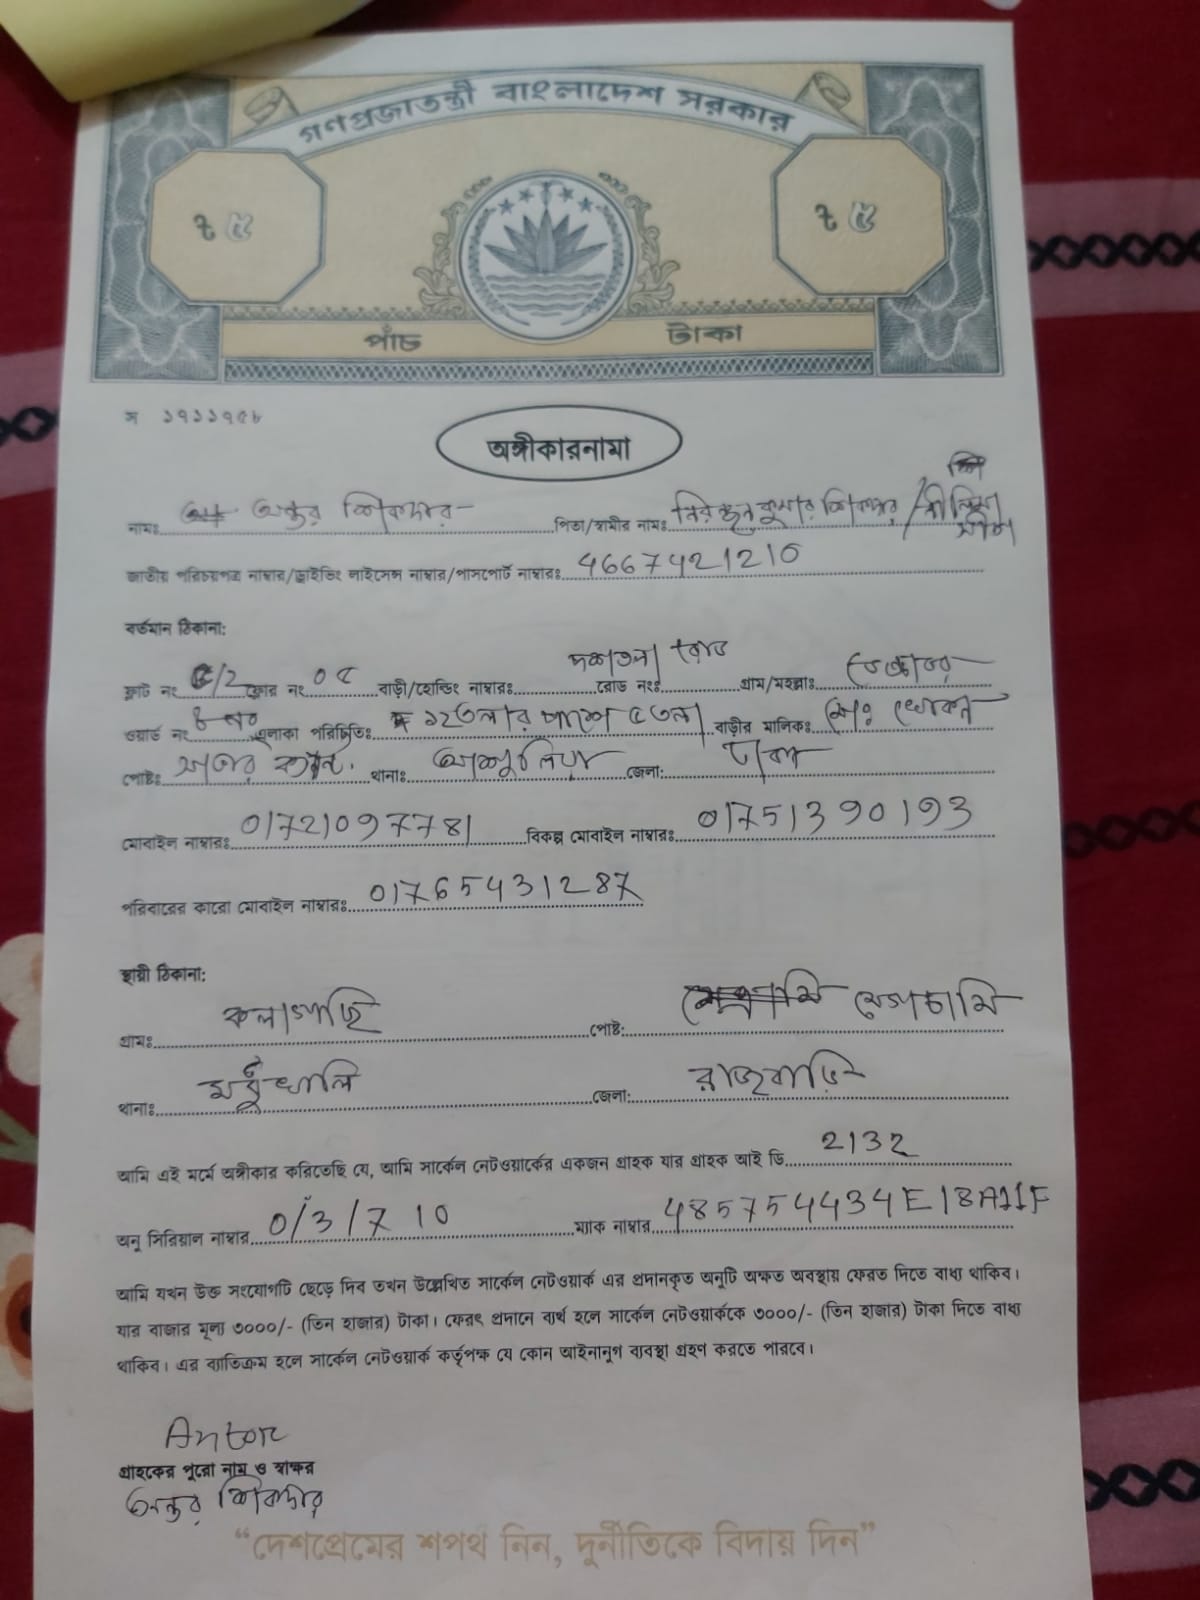 গণপ্রজাতন্ত্রী বাংলাদেশ সরকার
৳ ৫ ৳ ৫
পাঁচ টাকা
স ১৭১১৭৫৮
অঙ্গীকারনামা
নামঃ অন্তর শিকদার পিতা/স্বামীর নামঃ নিরঞ্জন কুমার শিকদার
জাতীয় পরিচয়পত্র নাম্বার/ড্রাইভিং লাইসেন্স নাম্বার/পাসপোর্ট নাম্বারঃ 4667421210
বর্তমান ঠিকানা:
ফ্লাট নং /2 ফ্লোর নং ০৫ বাড়ী/হোল্ডিং নাম্বারঃ দশতলা রোড নংঃ রোড গ্রাম/মহল্লাঃ
ওয়ার্ড নং ৮ নং এলাকা পরিচিতিঃ ১২তলার পাশে ৫ তলা বাড়ীর মালিকঃ মোঃ খোকন
পোষ্টঃ সাভার থানাঃ আশুলিয়া জেলা: ঢাকা
মোবাইল নাম্বারঃ 01721097781 বিকল্প মোবাইল নাম্বারঃ 01751390193
পরিবারের কারো মোবাইল নাম্বারঃ 01765431287
স্থায়ী ঠিকানা:
গ্রামঃ কলাগাছি পোষ্ট: মেগচামি
থানাঃ মধুখালি জেলা: রাজবাড়ি
আমি এই মর্মে অঙ্গীকার করিতেছি যে, আমি সার্কেল নেটওয়ার্কের একজন গ্রাহক যার গ্রাহক আই ডি 2132
অনু সিরিয়াল নাম্বার 0/3/7 10 ম্যাক নাম্বার 485754434E18A11F
আমি যখন উক্ত সংযোগটি ছেড়ে দিব তখন উল্লেখিত সার্কেল নেটওয়ার্ক এর প্রদানকৃত অনুটি অক্ষত অবস্থায় ফেরত দিতে বাধ্য থাকিব।
যার বাজার মূল্য ৩০০০/- (তিন হাজার) টাকা। ফেরৎ প্রদানে ব্যর্থ হলে সার্কেল নেটওয়ার্ককে ৩০০০/- (তিন হাজার) টাকা দিতে বাধ্য
থাকিব। এর ব্যতিক্রম হলে সার্কেল নেটওয়ার্ক কর্তৃপক্ষ যে কোন আইনানুগ ব্যবস্থা গ্রহণ করতে পারবে।
Antor
গ্রাহকের পুরো নাম ও স্বাক্ষর
অন্তর শিকদার
“দেশপ্রেমের শপথ নিন, দুর্নীতিকে বিদায় দিন”